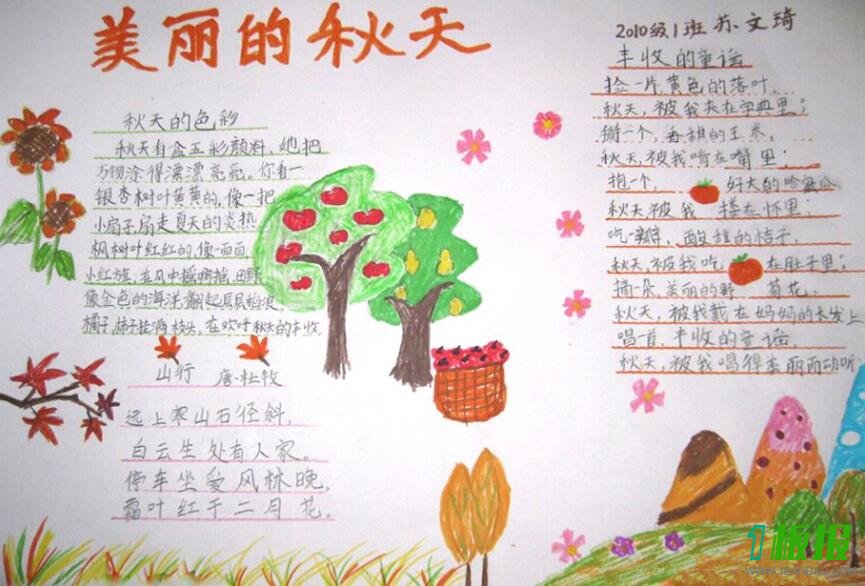 美丽的秋天
秋天的色彩
秋天有盒五彩颜料，她把
万物涂得漂漂亮亮。你看——
银杏树叶黄黄的，像一把
小扇子，扇走夏天的炎热
枫树叶红红的，像一面面
小红旗，在风中摇啊摇，田野
像金色的海洋，翻起层层稻浪。
橘子，柿子挂满枝头，在欢呼秋天的丰收。
山行 唐·杜牧
远上寒山石径斜，
白云生处有人家。
停车坐爱风林晚，
霜叶红于二月花。
2010级1班苏文琦
丰收的童谣
捡一片，黄色的落叶，
秋天，被我夹在字典里；
掰一个，香甜的玉米，
秋天，被我啃在嘴里；
抱一个， 好大的哈蜜瓜
秋天，被我 搂在怀里；
吃一瓣，酸甜的桔子，
秋天，被我吃 在肚子里；
摘一朵，美丽的野 菊花，
秋天，被我戴在妈妈的长发上
唱一首，丰收的童谣
秋天，被我唱得美丽而动听
1板报